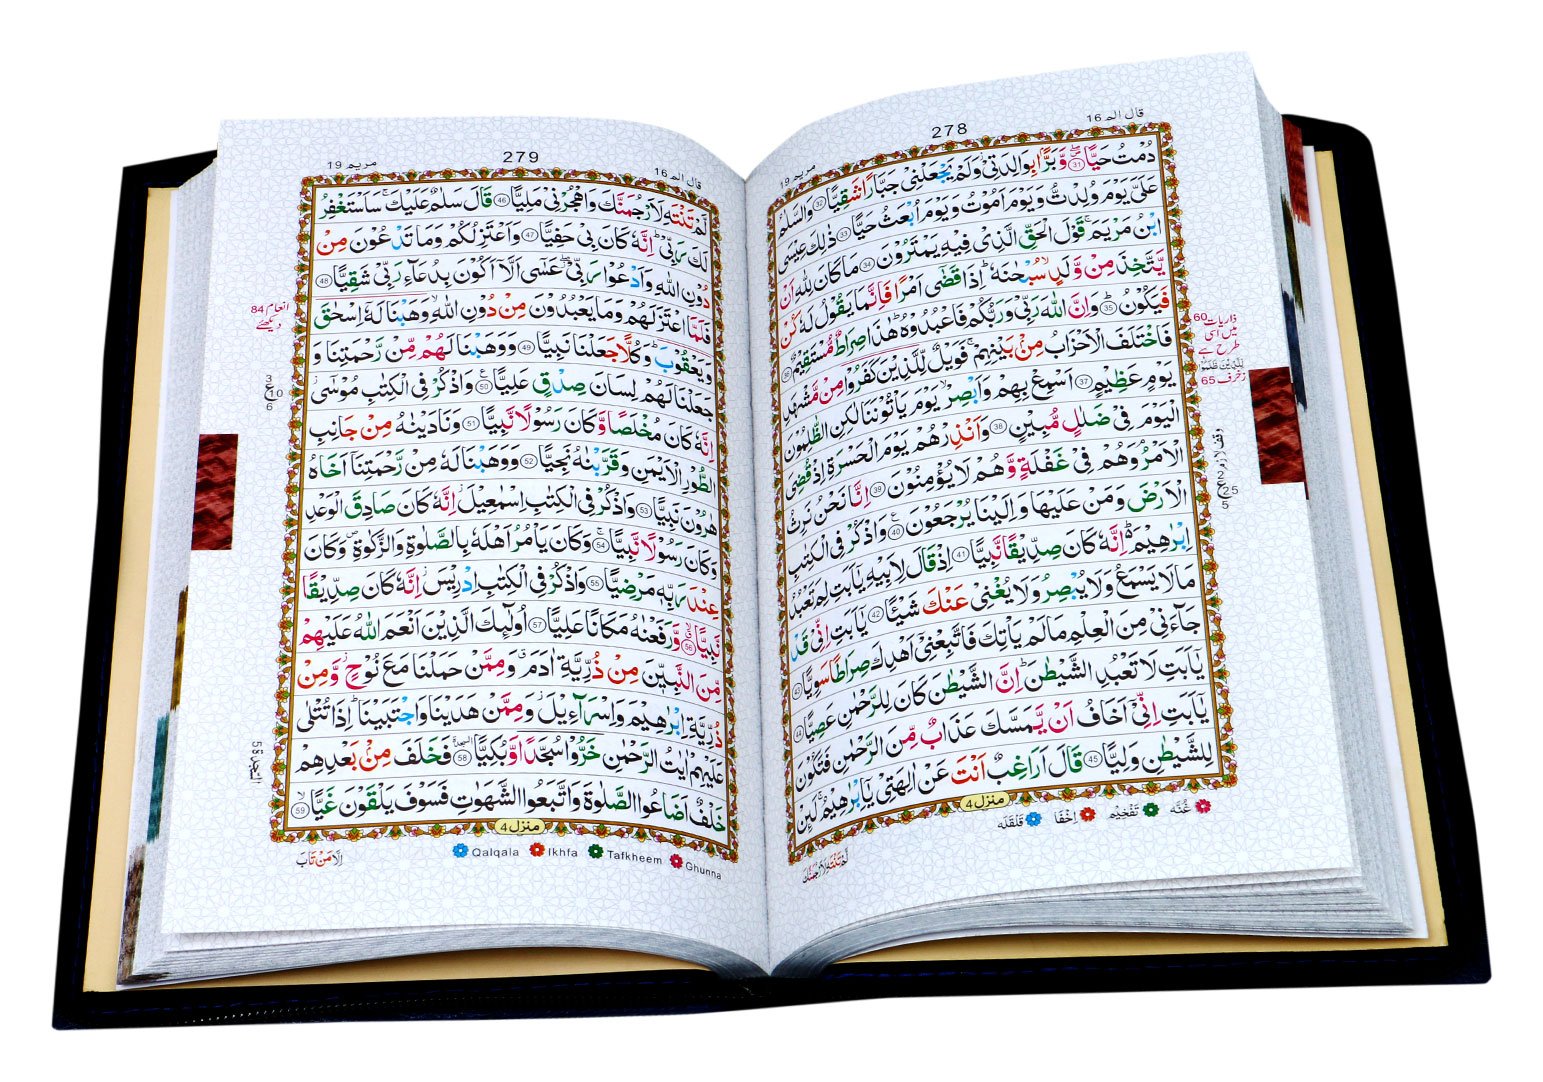 مريم 19 278 قال الم 16
دُمْتُ حَيًّا 31 وَّبَرًّۢا بِوَالِدَتِيْ وَلَمْ يَجْعَلْنِيْ جَبَّارًا شَقِيًّا 32 وَالسَّلٰمُ
عَلَيَّ يَوْمَ وُلِدْتُّ وَيَوْمَ اَمُوْتُ وَيَوْمَ اُبْعَثُ حَيًّا 33 ذٰلِكَ عِيْسَى
ابْنُ مَرْيَمَ قَوْلَ الْحَقِّ الَّذِيْ فِيْهِ يَمْتَرُوْنَ 34 مَا كَانَ لِلّٰهِ اَنْ
يَّتَّخِذَ مِنْ وَّلَدٍ سُبْحٰنَهٗ اِذَا قَضٰٓى اَمْرًا فَاِنَّمَا يَقُوْلُ لَهٗ كُنْ
فَيَكُوْنُ 35 وَاِنَّ اللّٰهَ رَبِّيْ وَرَبُّكُمْ فَاعْبُدُوْهُ هٰذَا صِرَاطٌ مُّسْتَقِيْمٌ 36
فَاخْتَلَفَ الْاَحْزَابُ مِنْۢ بَيْنِهِمْ فَوَيْلٌ لِّلَّذِيْنَ كَفَرُوْا مِنْ مَّشْهَدِ
يَوْمٍ عَظِيْمٍ 37 اَسْمِعْ بِهِمْ وَاَبْصِرْ يَوْمَ يَاْتُوْنَنَا لٰكِنِ الظّٰلِمُوْنَ
الْيَوْمَ فِيْ ضَلٰلٍ مُّبِيْنٍ 38 وَاَنْذِرْهُمْ يَوْمَ الْحَسْرَةِ اِذْ قُضِيَ
الْاَمْرُ وَهُمْ فِيْ غَفْلَةٍ وَّهُمْ لَا يُؤْمِنُوْنَ 39 اِنَّا نَحْنُ نَرِثُ
الْاَرْضَ وَمَنْ عَلَيْهَا وَاِلَيْنَا يُرْجَعُوْنَ 40 وَاذْكُرْ فِي الْكِتٰبِ
اِبْرٰهِيْمَ اِنَّهٗ كَانَ صِدِّيْقًا نَّبِيًّا 41 اِذْ قَالَ لِاَبِيْهِ يٰٓاَبَتِ لِمَ تَعْبُدُ
مَا لَا يَسْمَعُ وَلَا يُبْصِرُ وَلَا يُغْنِيْ عَنْكَ شَيْـًٔا 42 يٰٓاَبَتِ اِنِّيْ قَدْ
جَآءَنِيْ مِنَ الْعِلْمِ مَا لَمْ يَاْتِكَ فَاتَّبِعْنِيْٓ اَهْدِكَ صِرَاطًا سَوِيًّا 43
يٰٓاَبَتِ لَا تَعْبُدِ الشَّيْطٰنَ اِنَّ الشَّيْطٰنَ كَانَ لِلرَّحْمٰنِ عَصِيًّا 44
يٰٓاَبَتِ اِنِّيْٓ اَخَافُ اَنْ يَّمَسَّكَ عَذَابٌ مِّنَ الرَّحْمٰنِ فَتَكُوْنَ
لِلشَّيْطٰنِ وَلِيًّا 45 قَالَ اَرَاغِبٌ اَنْتَ عَنْ اٰلِهَتِيْ يٰٓاِبْرٰهِيْمُ لَئِنْ
منزل 4
غُنَّه تَفْخِيْم اِخْفَا قَلْقَلَه
لَّمْ تَنْتَهِ لَاَرْجُمَنَّكَ
ذاريات 60
میں اسی
طرح ہے
زخرف 65
25
5
2
مريم 19 279 قال الم 16
لَّمْ تَنْتَهِ لَاَرْجُمَنَّكَ وَاهْجُرْنِيْ مَلِيًّا 46 قَالَ سَلٰمٌ عَلَيْكَ سَاَسْتَغْفِرُ
لَكَ رَبِّيْ اِنَّهٗ كَانَ بِيْ حَفِيًّا 47 وَاَعْتَزِلُكُمْ وَمَا تَدْعُوْنَ مِنْ
دُوْنِ اللّٰهِ وَاَدْعُوْا رَبِّيْ عَسٰٓى اَلَّآ اَكُوْنَ بِدُعَآءِ رَبِّيْ شَقِيًّا 48
فَلَمَّا اعْتَزَلَهُمْ وَمَا يَعْبُدُوْنَ مِنْ دُوْنِ اللّٰهِ وَهَبْنَا لَهٗٓ اِسْحٰقَ
وَيَعْقُوْبَ وَكُلًّا جَعَلْنَا نَبِيًّا 49 وَوَهَبْنَا لَهُمْ مِّنْ رَّحْمَتِنَا وَ
جَعَلْنَا لَهُمْ لِسَانَ صِدْقٍ عَلِيًّا 50 وَاذْكُرْ فِي الْكِتٰبِ مُوْسٰٓى
اِنَّهٗ كَانَ مُخْلَصًا وَّكَانَ رَسُوْلًا نَّبِيًّا 51 وَنَادَيْنٰهُ مِنْ جَانِبِ
الطُّوْرِ الْاَيْمَنِ وَقَرَّبْنٰهُ نَجِيًّا 52 وَوَهَبْنَا لَهٗ مِنْ رَّحْمَتِنَآ اَخَاهُ
هٰرُوْنَ نَبِيًّا 53 وَاذْكُرْ فِي الْكِتٰبِ اِسْمٰعِيْلَ اِنَّهٗ كَانَ صَادِقَ الْوَعْدِ
وَكَانَ رَسُوْلًا نَّبِيًّا 54 وَكَانَ يَاْمُرُ اَهْلَهٗ بِالصَّلٰوةِ وَالزَّكٰوةِ وَكَانَ
عِنْدَ رَبِّهٖ مَرْضِيًّا 55 وَاذْكُرْ فِي الْكِتٰبِ اِدْرِيْسَ اِنَّهٗ كَانَ صِدِّيْقًا
نَّبِيًّا 56 وَّرَفَعْنٰهُ مَكَانًا عَلِيًّا 57 اُولٰٓئِكَ الَّذِيْنَ اَنْعَمَ اللّٰهُ عَلَيْهِمْ
مِّنَ النَّبِيّٖنَ مِنْ ذُرِّيَّةِ اٰدَمَ وَمِمَّنْ حَمَلْنَا مَعَ نُوْحٍ وَّمِنْ
ذُرِّيَّةِ اِبْرٰهِيْمَ وَاِسْرَآءِيْلَ وَمِمَّنْ هَدَيْنَا وَاجْتَبَيْنَا اِذَا تُتْلٰى
عَلَيْهِمْ اٰيٰتُ الرَّحْمٰنِ خَرُّوْا سُجَّدًا وَّبُكِيًّا 58 فَخَلَفَ مِنْۢ بَعْدِهِمْ
خَلْفٌ اَضَاعُوا الصَّلٰوةَ وَاتَّبَعُوا الشَّهَوٰتِ فَسَوْفَ يَلْقَوْنَ غَيًّا 59
منزل 4
Qalqala Ikhfa Tafkheem Ghunna
اِلَّا مَنْ تَابَ
انعام 84
دیکھئے
3
10
6
السجدة 5